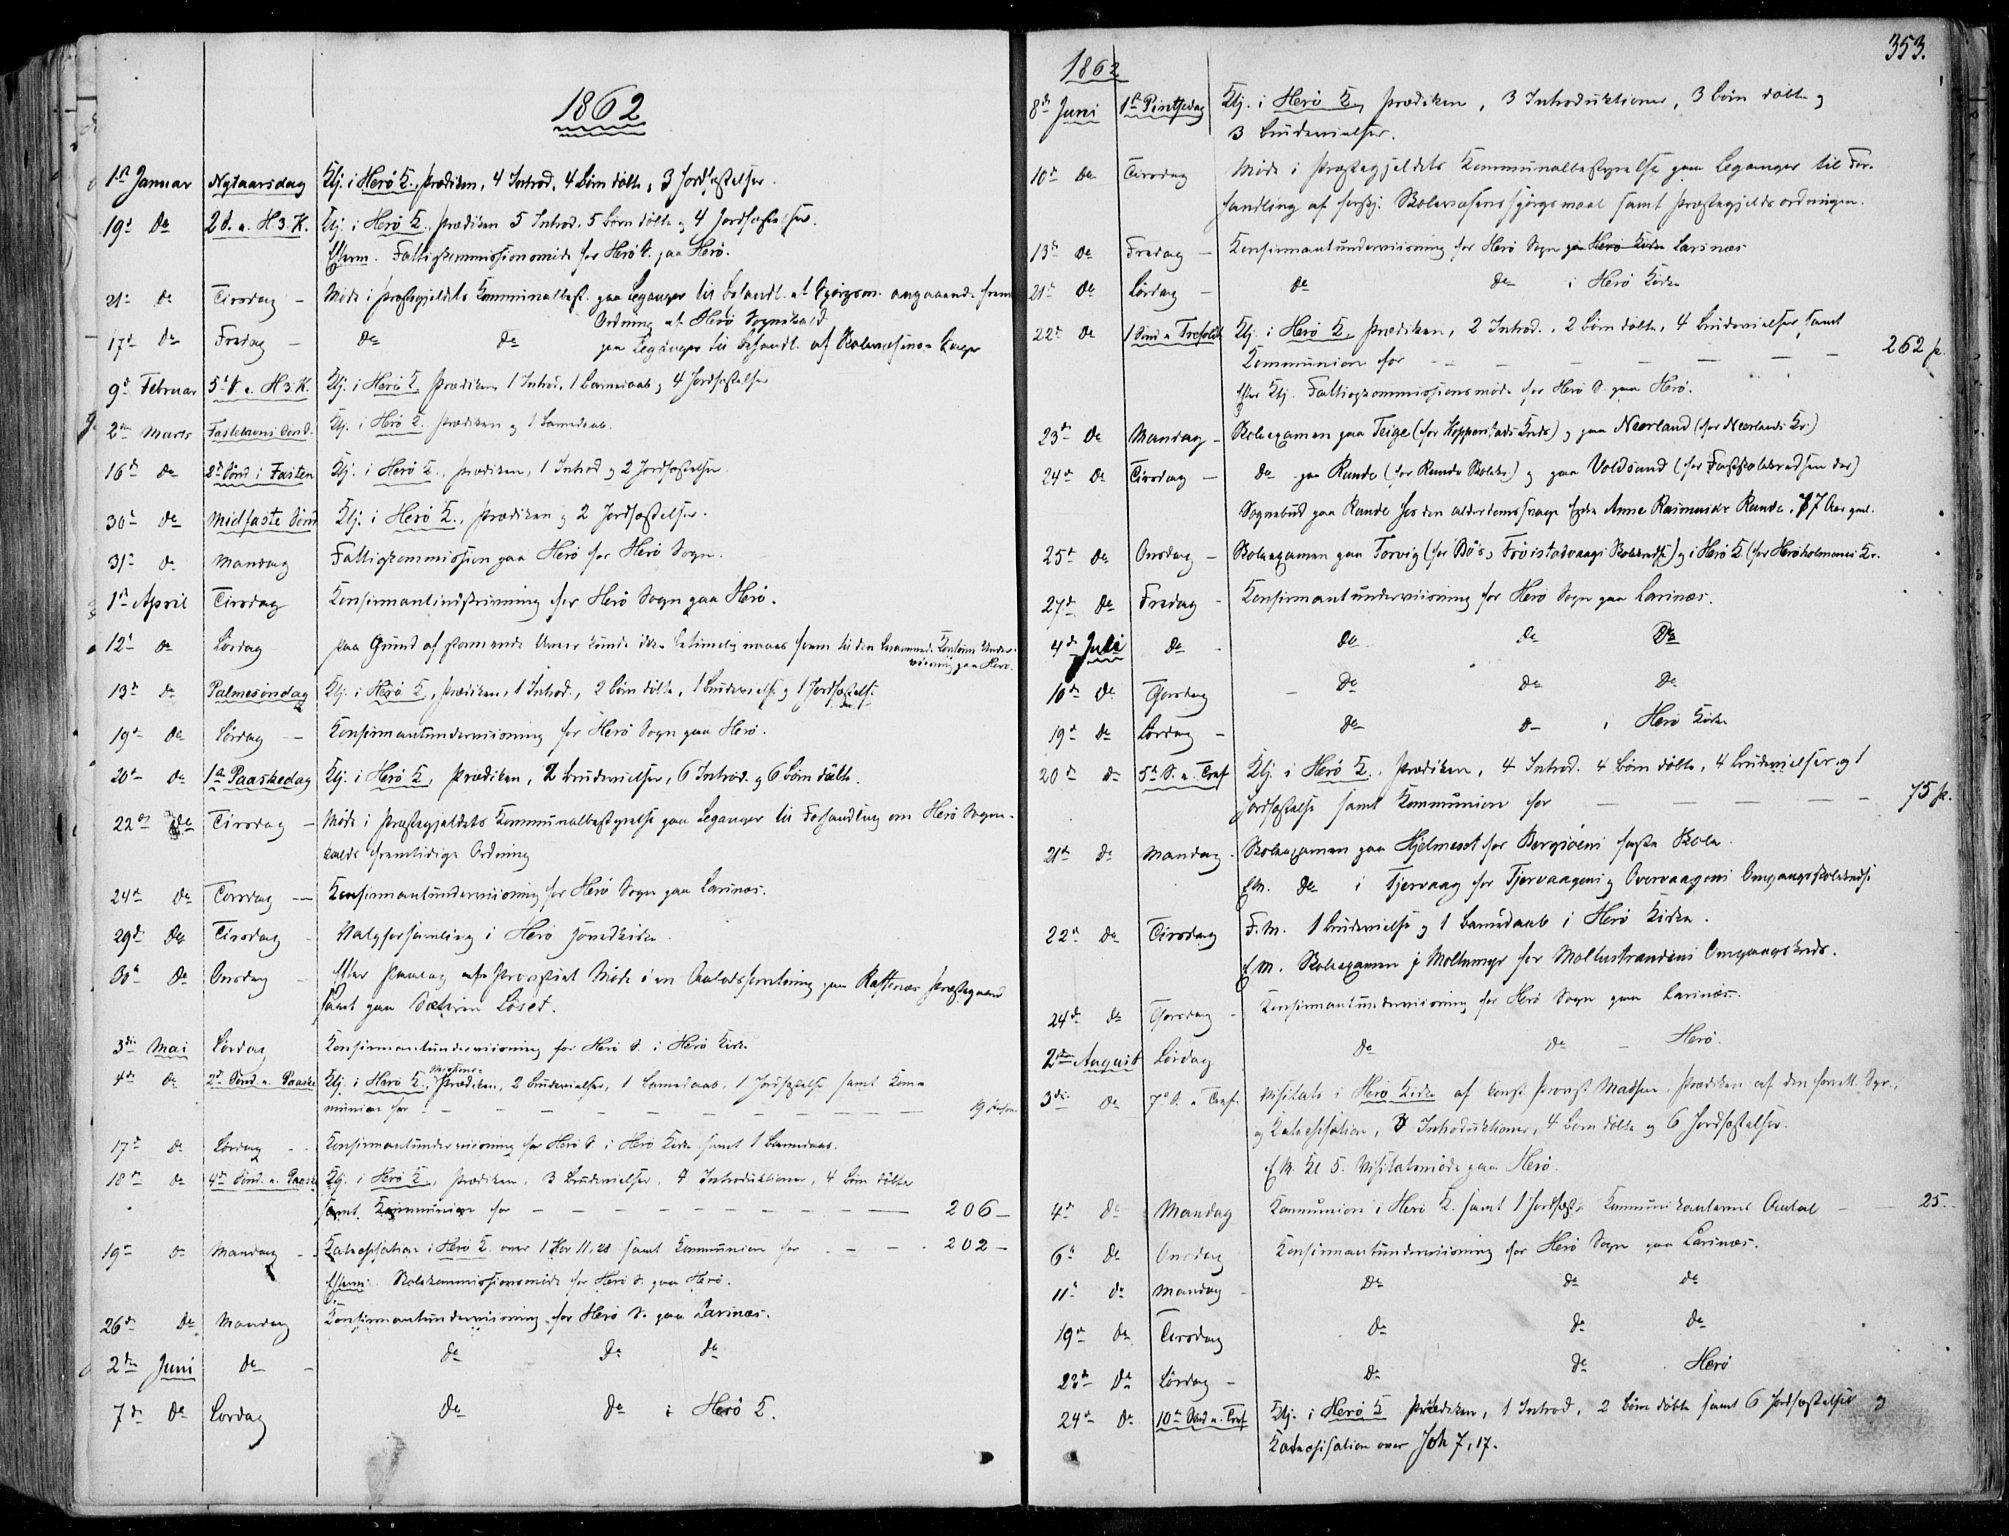 1862
1ste Januar Nytaarsdag Tlj. i Herö K., Prædiken, 4 Introd, 4 Börn döbte, 3 Jordfæstelser.
19de Do 2d S. e. H. 3. K. Tlj. i Herö K., Prædiken 5 Introd. 5 Börn döbte og 4 Jordfæstelser.
Efterm. Fattigkommissionsmöde for Herö S. paa Herö.
21de Do Tirsdag – Möde i Præstegjeldets Kommunalbest. paa Leganger til Behandl. af Spörgsm. angaaende frem
Ordning af Herö Sognekald
17de Do Fredag – Do Do paa Leganger til Behandl. af Skolevæsens
9de Februar 5te S. e. H. 3. K. Tlj. i Herö K. Prædiken 1 Introd, 1 Barnedaab og 4 Jordfæstelser
2den Marts Fastelavns Sönd. Tlj. i Herö K. Prædiken og 1 Barnedaab.
16de Do 2d Sönd i Fasten Tlj. i Herö K., Prædiken, 1 Introd og 2 Jordfæstelser.
30te Do Midfaste Sönd Tlj. i Herö K., Prædiken og 2 Jordfæstelser.
31te Do Mandag Fattigkommission paa Herö for Herö Sogn.
1ste April Tirsdag Konfirmantindskrivning for Herö Sogn paa Herö.
12te Do Lördag Paa Grund af stormende Veir kunde ikke betimelig naaes frem til den berammede Konfirm. Under-
viisning paa Herö.
13de Do Palmesöndag Tlj. i Herö K., Prædiken, 1 Introd., 2 Börn döbte, 1 Brudevielse og 1 Jordfæstelse.
19de Do Lördag – Konfirmantunderviisning for Herö Sogn paa Herö.
20de Do 1ste Paaskedag Tlj. i Herö K., Prædiken, 2 Brudevielser, 6 Introd. og 6 Börn döbte.
22de Do Tirsdag – Möde i Præstegjeldets Kommunalbestyrelse paa Leganger til Forhandling om Herö Sogne-
kalds fremtidige Ordning
24de Do Torsdag – Konfirmantunderviisning for Herö Sogn paa Larsnæs.
29de Do Tirsdag – Valgforsamling i Herö
30te Do Onsdag – Efter af Provstiet Möde i en Aabodsforretning paa Præstegaard
samt paa Löset.
3die Mai Lördag Konfirmantunderviisning for Herö S. i Herö Kirke
4de Do 2d Sönd. e. Paaske Tlj. i Herö K., Missions-Prædiken, 2 Brudevielser, 1 Barnedaab, 1 Jordfæstelse samt Kom-
munion for – – – – – – – – – 19
17de Do Lördag – Konfirmantunderviisning for Herö S. i Herö Kirke samt 1 Barnedaab.
18de Do 4de Sönd. e. Paaske Tlj. i Herö K., Prædiken, 3 Brudevielser, 4 Introduktioner, 4 Börn döbte
samt Kommunion for – – – – – – – – 206 –
19de Do Mandag – Katechisation i Herö K. over 1 Kor 11, 28 samt Kommunion for – – – 202 –
Efterm: Skolekommissionsmöde for Herö S. paa Herö.
26de Do Mandag Konfirmantunderviisning for Herö S. paa Larsnæs.
2den Juni Do – Do Do Do
7de Do Lördag Do Do i Herö K.
353.
1862
8de Juni 1ste Pintsedag Tlj. i Herö K., Prædiken, 3 Introduktioner, 3 Börn döbte og
3 Brudevielser.
10de Do Tirsdag Möde i Præstegjeldets Kommunalbestyrelse paa Leganger til For-
handling af forskj. Skolevæsensspörgsmaal samt Præstegjelds ordningen.
13de Do Fredag – Konfirmantunderviisning for Herö Sogn paa Herö Kirke Larsnæs
21de Do Lördag – Do Do i Herö Kirke
22de Do 1 Sönd e Trefoldh Tlj. i Herö K., Prædiken, 2 Introd., 2 Börn döbte, 4 Brudevielser, samt
Kommunion for – – – – – – – 262 p.
Efter Tlj. Fattigkommissionsmöde for Herö S. paa Herö.
23de Do Mandag – Skoleexamen paa Teige (for Kopperstads Kreds) og paa Nærland (for Nærlands Kr.)
24de Do Tirsdag – Do paa Runde (for Runde Skolekr.) og paa Voldsund (for Fastskolekredsen der)
Sognebud paa Runde hos den alderdomssvage Enke Anne Rasmusdr Runde, 77 Aar gml.
25de Do Onsdag – Skoleexamen paa Torvig (for Bö's og Fröistadvaags Skolekredse) og i Herö K. (for Heröholmenes Kr.
27de Do Fredag – Konfirmantunderviisning for Herö Sogn paa Larsnæs.
4de Juli Do – Do Do Do
10de Do Torsdag – Do Do Do
19de Do Lördag – Do Do i Herö Kirke
20de Do 5te S. e. Tref Tlj. i Herö K., Prædiken, 4 Introd. 4 Börn döbte, 4 Brudevielser og 1
Jordfæstelse samt Kommunion for – – – – – 75 p.
21de Do Mandag – Skoleexamen paa Hjelmeset for Bergsöens faste Skole.
E.M. Do i Tjervaag for Tjervaagens og Overvaagens Omgangsskolekredse
22de Do Tirsdag F.M. 1 Brudevielse og 1 Barnedaab i Herö Kirke.
E.M. Skoleexamen i Moltumyr for Moltustrandens Omgangskreds.
24de Do Torsdag – Konfirmantunderviisning for Herö Sogn paa Larsnæs.
2den August Lördag Do Do – Herö.
3die Do 7de S. e Tref. Visitats i Herö Kirke af const. Provst Madsen. Prædiken af den Spr.,
og Katechisation, 3 Introduktioner, 4 Börn döbte og 6 Jordfæstelser.
E.M. Kl 5. Visitatsmöde paa Herö.
4de Do Mandag Kommunion i Herö K. samt 1 Jordfæst. Kommunikanternes Antal – 25.
6te Do Onsdag Konfirmantunderviisning for Herö Sogn paa Larsnæs.
11te Do Mandag – Do Do do
19de Do Tirsdag Do Do Do
23de Do Lördag – Do Do Herö
24de Do 10de Sönd e. Tref Tlj. i Herö K Prædiken, 1 Introd, 2 Börn döbte samt 6 Jordfæstelser og
Katechisation over Joh 7, 17.